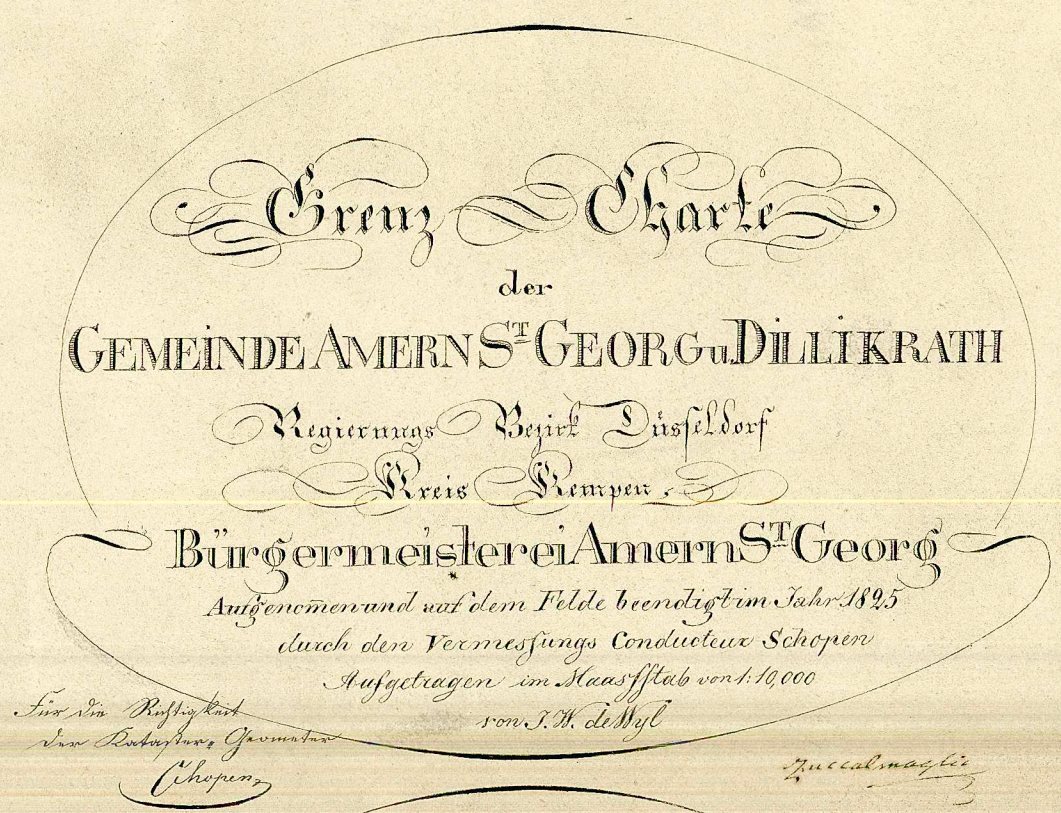 Grenz Charte
der
GEMEINDE AMERN ST GEORG u. DILLIKRATH
Regierungs Bezirk Düsseldorf
Kreis Kempen,
Bürgermeisterei Amern ST Georg
Aufgenom̅en und auf dem Felde beendigt im Jahr 1825
durch den Vermessungs Conducteur Schopen
Aufgetragen im Maassstab von 1:10,000
von J. W. de Wyl
Für die Richtigkeit
Der Kataster-Geometer
Schopen
Zuccalmaglio